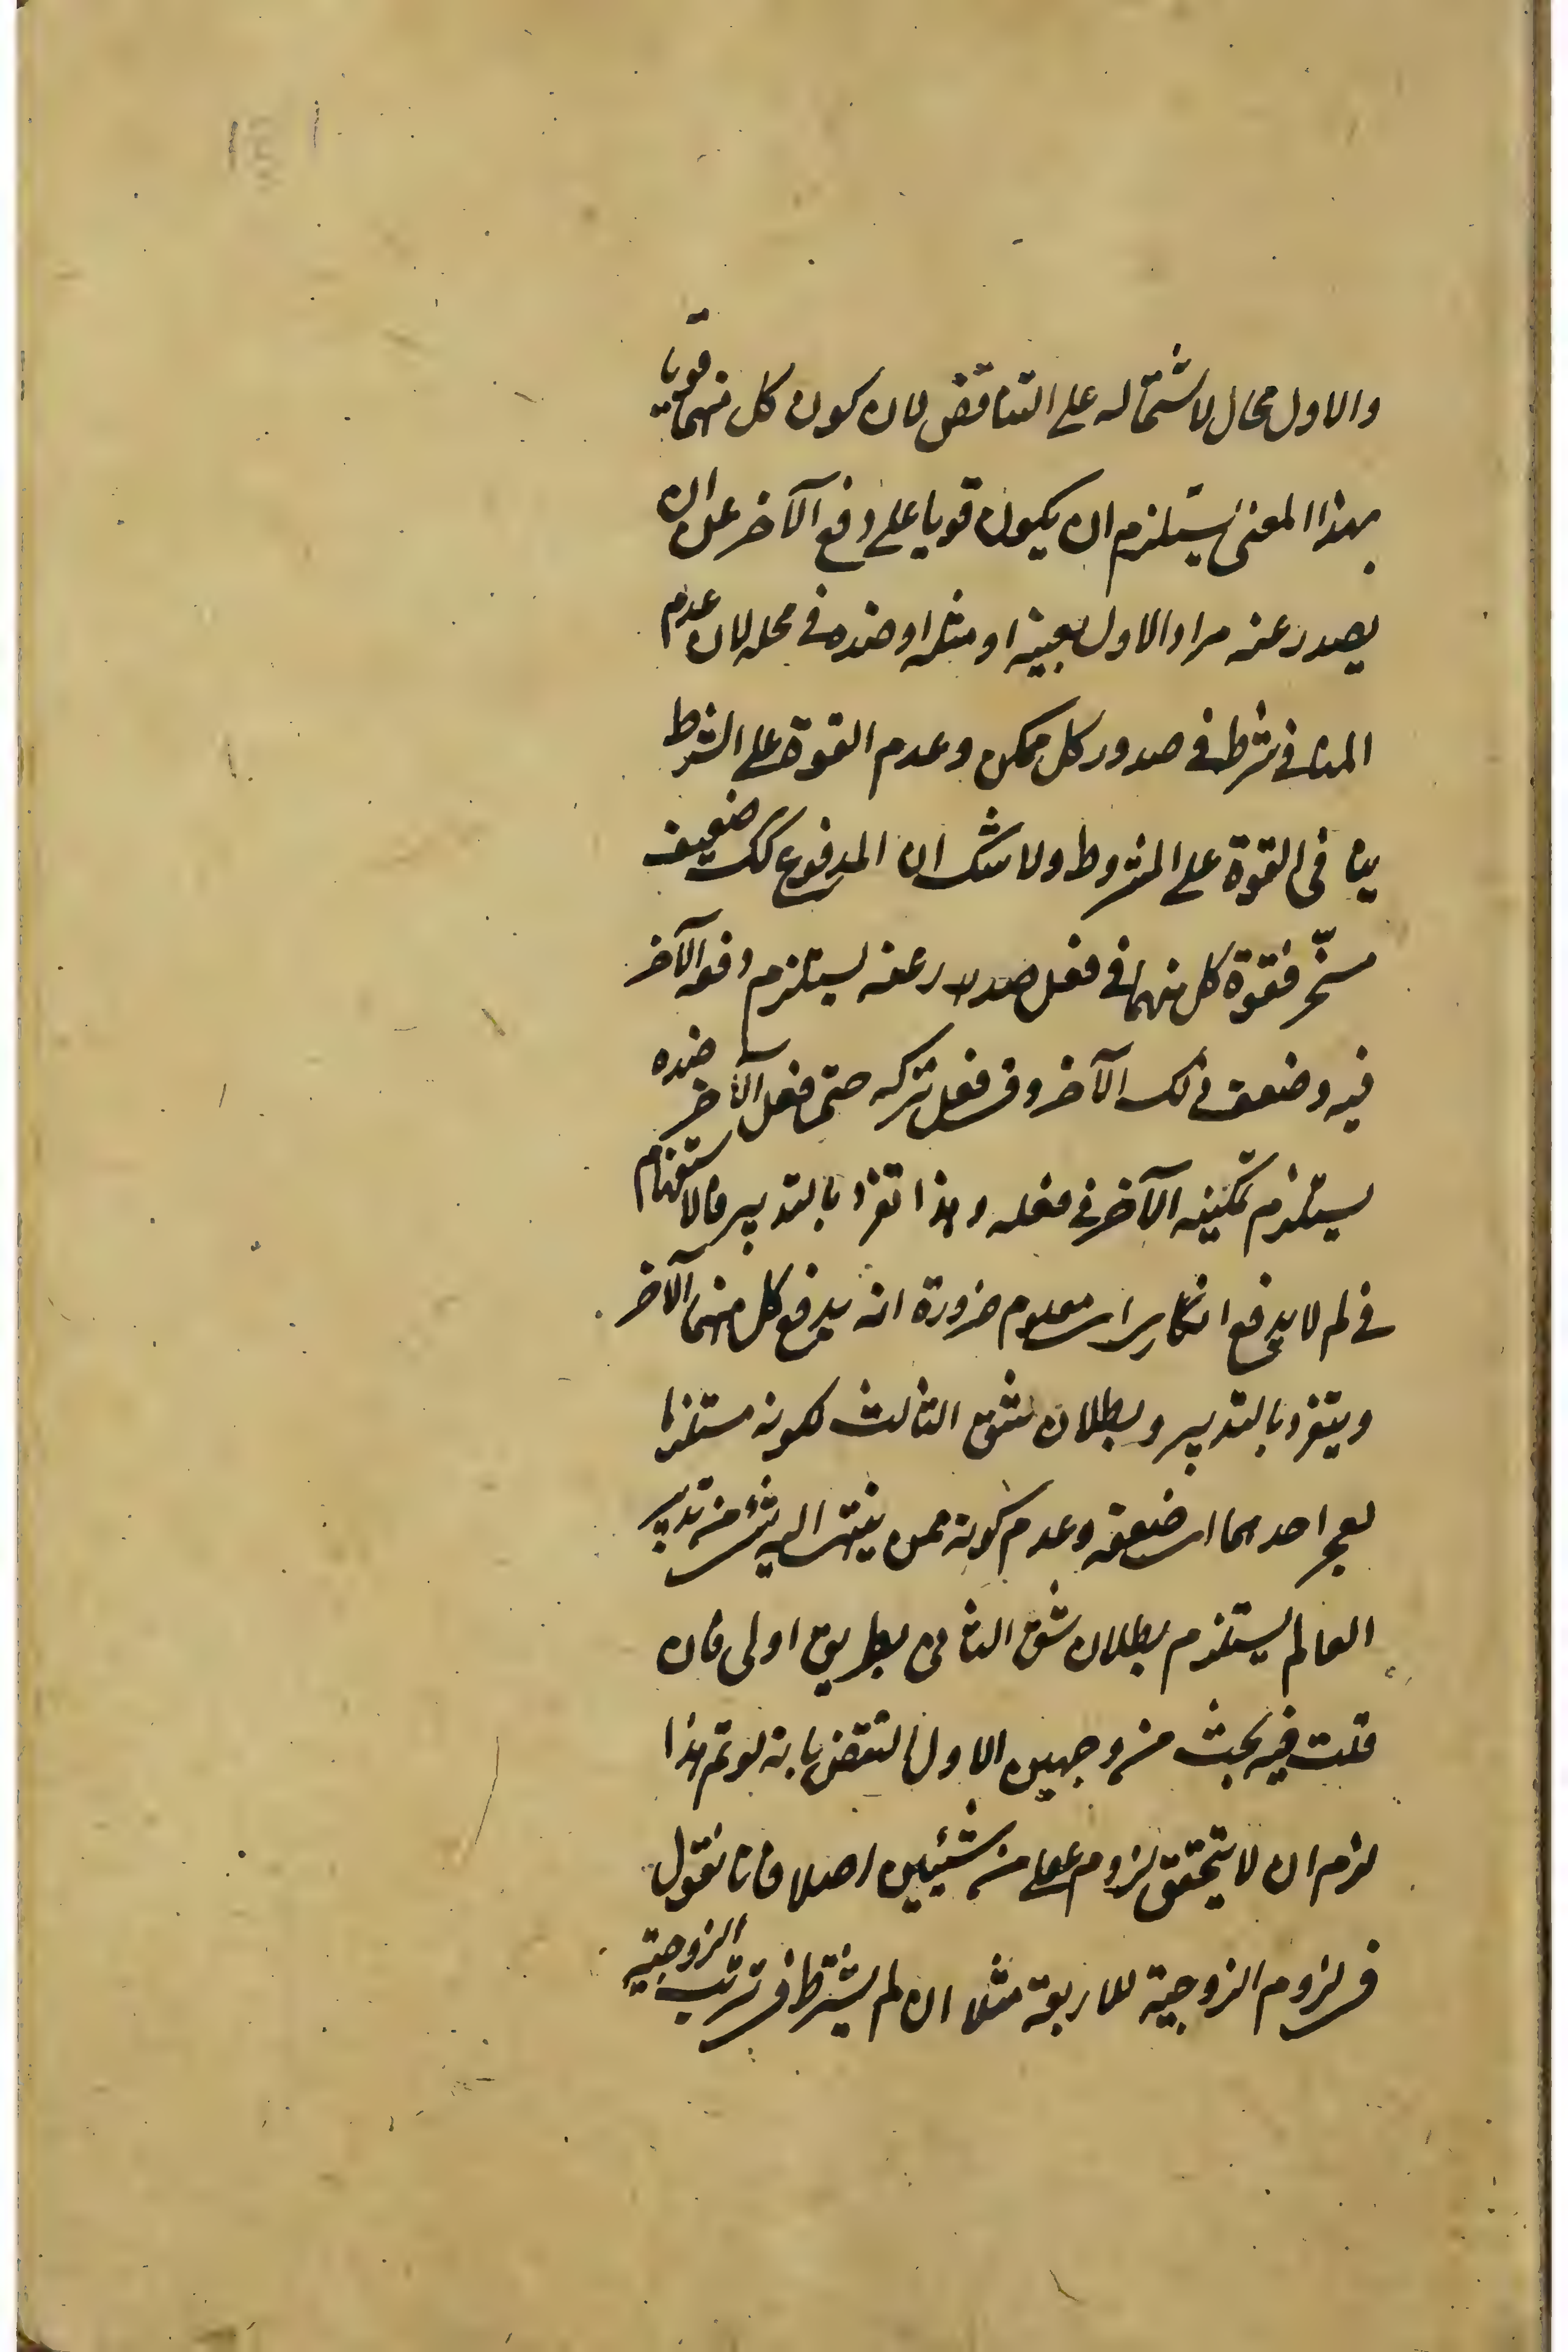 والاول محال لاشتماله على التناقض لان كون كل منهما قويا
بهذا المعنى يستلزم ان يكون قويا على دفع الآخر عن ان
يصدر عنه مراد الاول بعينه او مثله او ضده في محله لان عدم
المنافي شرط في صدور كل ممكن وعدم القوة على الشرط
ينافى القوة على المشروط ولا شك ان المدفوع كك ضعيف
مسخّر فقوة كل منهما في فعل صدر عنه يستلزم دفعه الآخر
فيه وضعف ذلك الآخر وفى فعل تركه حتى فعل الآخر ضده
يستلزم تمكينه الآخر في فعله وهذا تفرد بالتدبير فالاستفهام
في لم لا يدفع انكارى اى معلوم ضرورة انه يدفع كل منهما الآخر
ويتفرد بالتدبير وبطلان شق الثالث لكونه مستلزما
لعجز احدهما اى ضعفه وعدم كونه ممن ينتهى اليه شئ من تدبير
العالم يستلزم بطلان شق الثانى بطريق اولى فان
قلت فيه بحث من وجهين الاول النقض بانه لو تم هذا
لزم ان لا يتحقق لزوم عقلى من شيئين اصلا فانا نقول
فى لزوم الزوجية للاربعة مثلا ان لم يشترط فى ترتب الزوجية